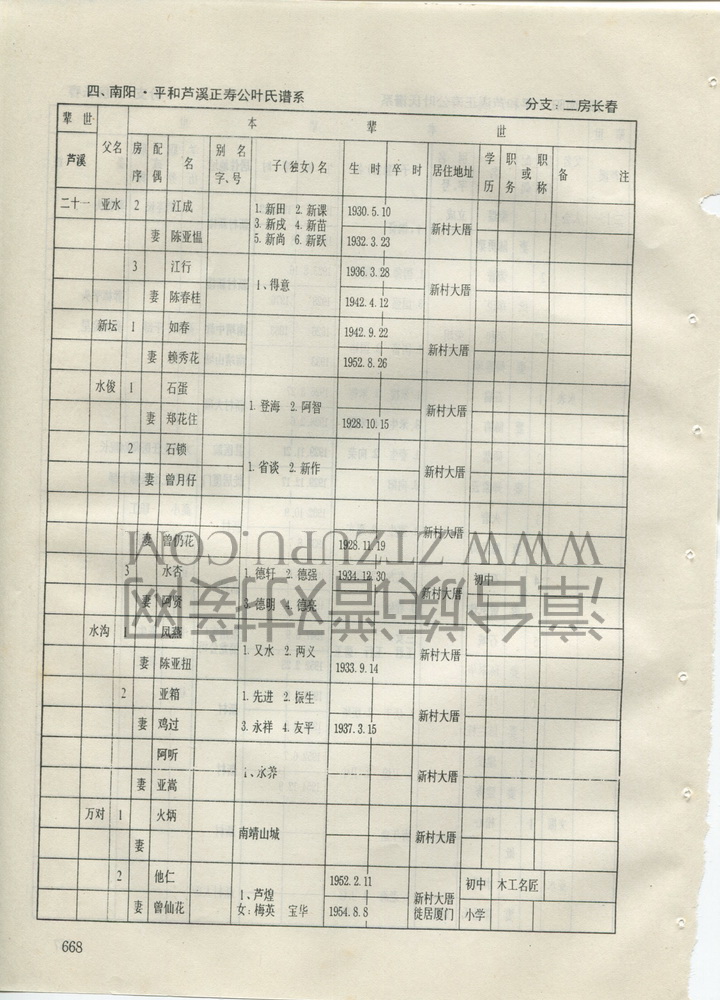 四、南阳·平和芦溪正寿公叶氏谱系 分支:二房长春
辈 世 本 辈 世
芦溪 父名 房序 配偶 名 别名字、号 子(独女)名 生 时 卒 时 居住地址 学历 职务或职称 备 注
二十一 亚水 2 江成 1.新田 2.新课 1930.5.10 新村大厝
3.新戍 4.新苗
妻 陈亚揾 5.新尚 6.新跃 1932.3.23
3 江行 1、得意 1936.3.28 新村大厝
妻 陈春桂 1942.4.12
新坛 1 如春 1942.9.22 新村大厝
妻 赖秀花 1952.8.26
水俊 1 石蛋 1.登海 2.阿智 新村大厝
妻 郑花住 1928.10.15
2 石锁 1.省谈 2.新作 新村大厝
妻 曾月仔
新村大厝
妻 曾仍花 1928.11.19
3 水杏 1.德轩 2.德强 1934.12.30 新村大厝 初中
妻 阿贤 3.德明 4.德亮
水沟 1 凤燕 1.又水 2.两义 新村大厝
妻 陈亚扭 1933.9.14
2 亚箱 1.先进 2.振生 新村大厝
妻 鸡过 3.永祥 4.友平 1937.3.15
阿听 1、水养 新村大厝
妻 亚嵩
万对 1 火炳 南靖山城 新村大厝
妻
2 他仁 1、芦煌 1952.2.11 新村大厝 初中 木工名匠
妻 曾仙花 女:梅英 宝华 1954.8.8 徙居厦门 小学
668
WWW.ZTZUPU.COM
漳台族谱对接网